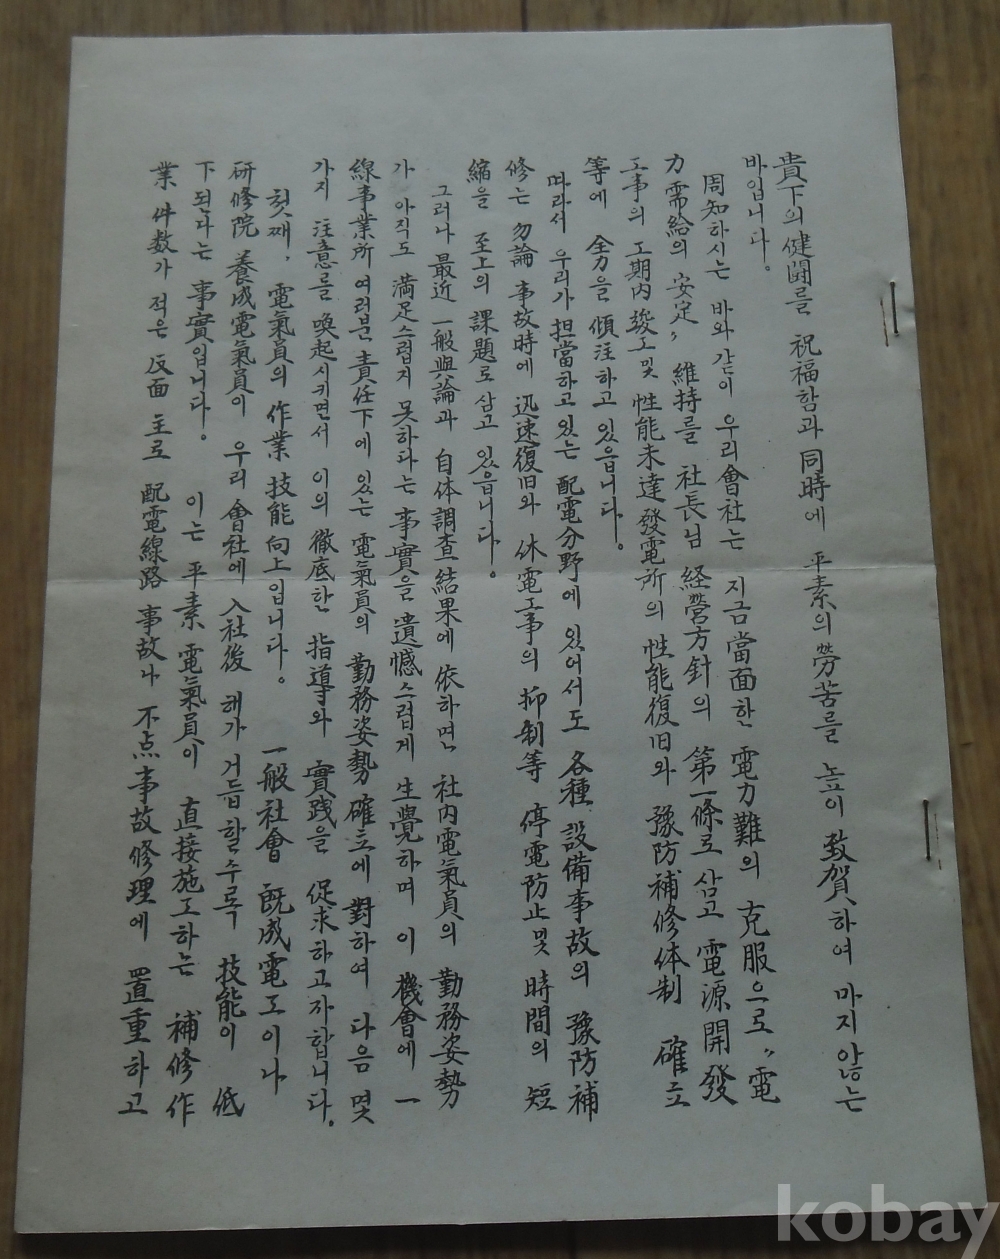 貴下의 健闘를 祝福함과 同時에 平素의 勞苦를 높이 致賀하여 마지않는
바입니다.
周知하시는 바와 같이 우리會社는 지금當面한 電力難의 克服으로 "電
力需給의 安定" 維持를 社長님 経營方針의 第一條로 삼고 電源開發
工事의 工期内 竣工및 性能未達發電所의 性能復旧와 豫防補修体制 確立
等에 全力을 傾注하고 있읍니다.
따라서 우리가 担當하고 있는 配電分野에 있어서도 各種 設備事故의 豫防補
修는 勿論 事故時에 迅速復旧와 休電工事의 抑制等 停電防止및 時間의 短
縮을 至上의 課題로 삼고 있읍니다.
그러나 最近 一般與論과 自体調査結果에 依하면 社内電氣員의 勤務姿勢
가 아직도 満足스럽지 못하다는 事實을 遺憾스럽게 生覺하며 이 機會에 一
線事業所 여러분 責任下에 있는 電氣員의 勤務姿勢 確立에 對하여 다음 몇
가지 注意를 喚起시키면서 이의 徹底한 指導와 實践을 促求하고자합니다.
첫째, 電氣員의 作業 技能向上입니다. 一般社會 既成電工이나
研修院 養成電氣員이 우리 會社에 入社後 해가 거듭할수록 技能이 低
下된다는 事實입니다. 이는 平素 電氣員이 直接施工하는 補修作
業 件数가 적은 反面 主로 配電線路 事故나 不点事故修理에 置重하고
kobay